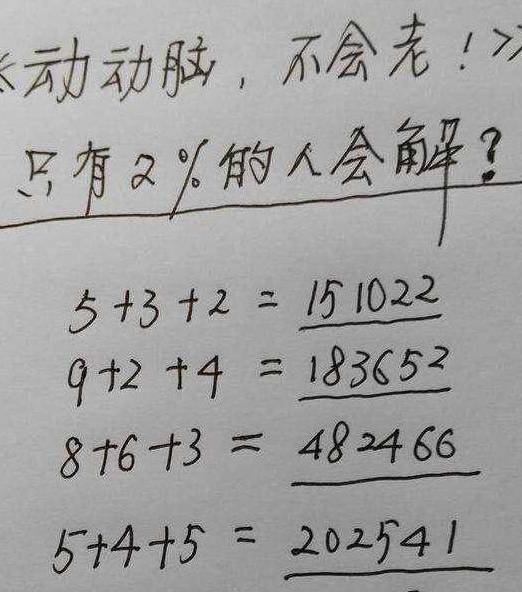 《动动脑，不会老！》
只有2%的人会解？
5+3+2=151022
9+2+4=183652
8+6+3=482466
5+4+5=202541